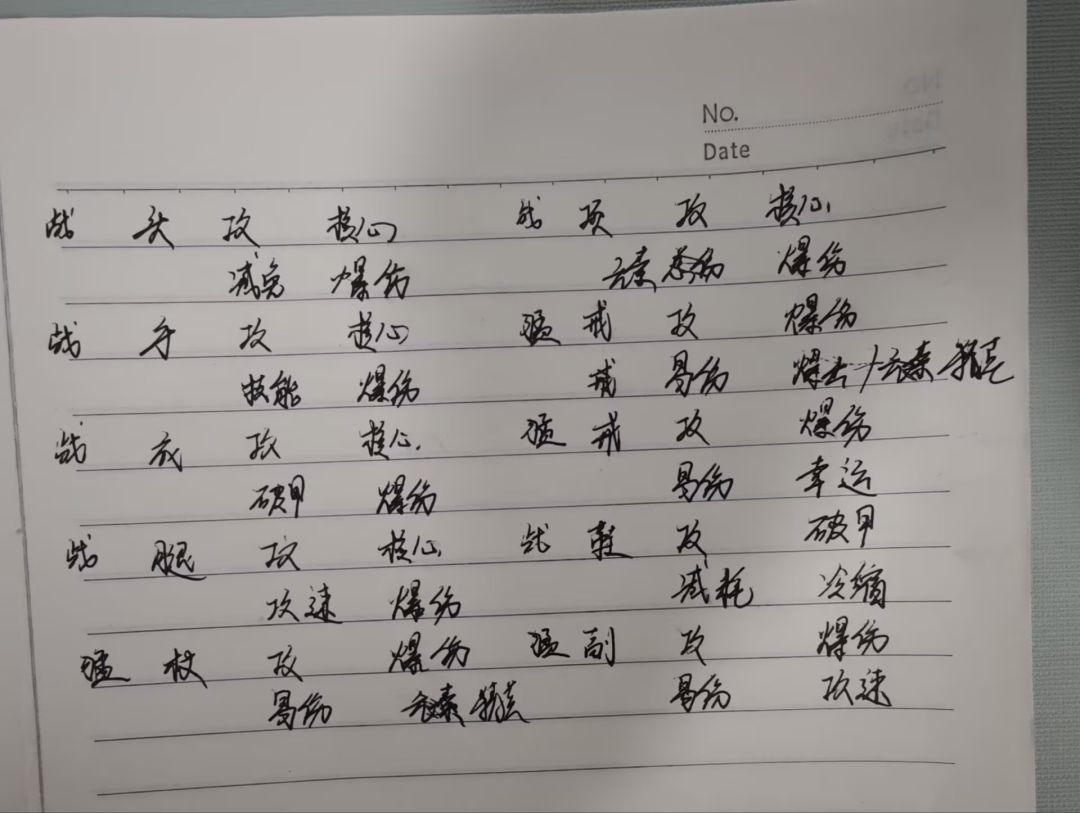 No.
Date
战 头 攻 核心 战 项 攻 核心
减免 爆伤 元素总伤 爆伤
战 手 攻 核心 猛 戒 攻 爆伤
技能 爆伤 戒 易伤 爆击/元素
战 衣 攻 核心 猛 戒 攻 爆伤
破甲 爆伤 易伤 幸运
战 腿 攻 核心 战 鞋 攻 破甲
攻速 爆伤 减耗 冷缩
猛 杖 攻 爆伤 猛 副 攻 爆伤
易伤 元素 易伤 攻速